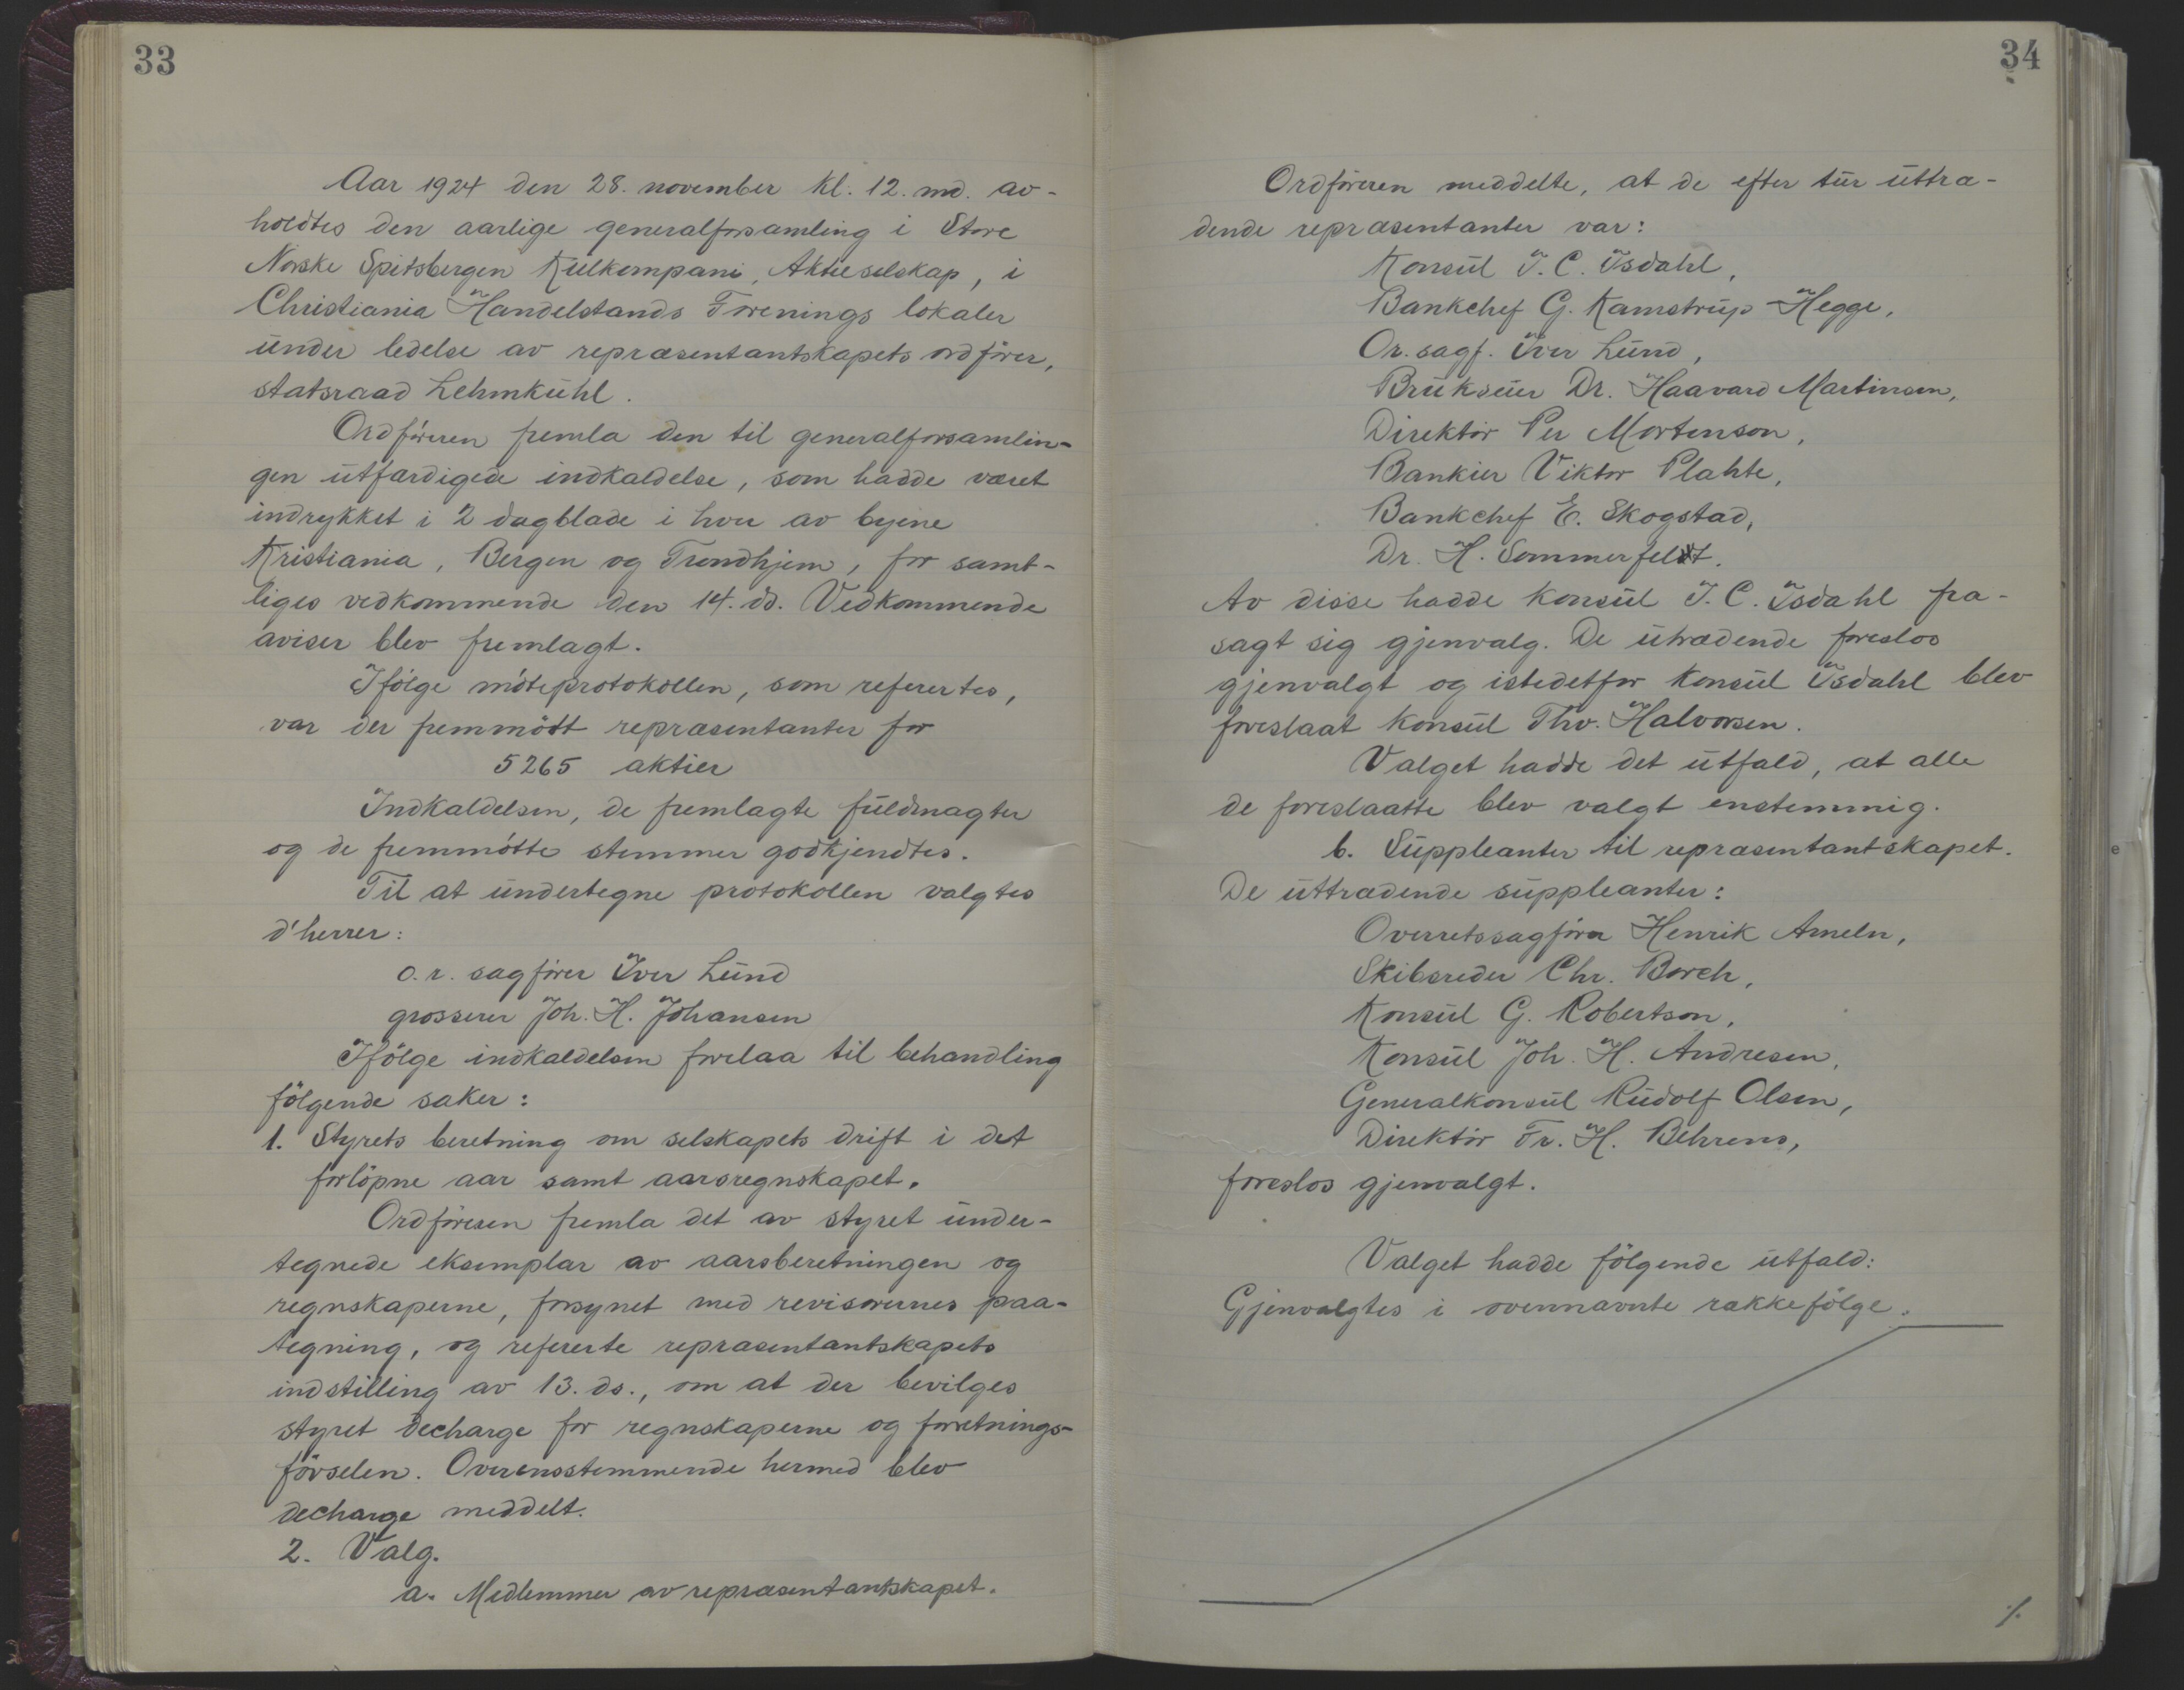 33
Aar 1924 den 28. november kl. 12. md. av-
holdtes den aarlige generalforsamling i Store
Norske Spitsbergen Kulkompani, Aktieselskap, i
Christiania Handelstands Forenings lokaler
under ledelse av repræsentantskapets ordfører,
statsraad Lehmkuhl.
Ordføreren fremla den til generalforsamlin-
gen utfærdigede indkaldelse, som hadde været
indrykket i 2 dagblade i hver av byene
Kristiania, Bergen og Trondhjem, for samt-
liges vedkommende den 14. ds. Vedkommende
aviser blev fremlagt.
Ifölge möteprotokollen, som refertes,
var der fremmött repræsentanter for
5265 aktier
Indkaldelsen, de fremlagte fuldmagter
og de fremmötte stemmer godkjendtes.
Til at undertegne protokollen valgtes
d'herrer:
o.r. sagförer Iver Lund
grosserer Joh. H. Johansen
Ifölge indkaldelsen forelaa til behandling
fölgende saker:
1. Styrets beretning om selskapets drift i det
forlöpne aar samt aarsregnskapet.
Ordföreren fremla det av styret under-
tegnede eksemplar av aarsberetningen og
regnskaperne, forsynet med revisorernes paa-
tegning, og refererte repræsentantskapets
indstilling av 13. ds., om at der bevilges
styret decharge for regnskaperne og forretnings-
förselen. Overensstemmende hermed blev
decharge meddelt.
2. Valg.
a. Medlemmer av repræsentantskapet.
34
Ordföreren meddelte, at de efter tur uttræ-
dende repræsentanter var:
Konsul T. C. Isdahl,
Bankchef G. Kamstrup Hegge,
Or. sagf. Iver Lund,
Brukseier Dr. Haavard Martinsen,
Direktör Per Mortenson,
Bankier Viktor Plahte,
Bankchef E. Skogstad,
Dr. H. Sommerfeldt.
Av disse hadde konsul T. C. Isdahl fra-
sagt sig gjenvalg. De utrædende foreslos
gjenvalgt og istedetfor konsul Isdahl blev
foreslaat konsul Thv. Halvorsen.
Valget hadde det utfald, at alle
de foreslaatte blev valgt enstemmig.
b. Suppleanter til repræsentantskapet.
De uttrædende suppleanter:
Overretssagförer Henrik Ameln,
Skibsreder Chr. Borch,
Konsul G. Robertson,
Konsul Joh. H. Andresen,
Generalkonsul Rudolf Olsen,
Direktör Fr. H. Behrens,
foreslos gjenvalgt.
Valget hadde fölgende utfald:
Gjenvalgtes i ovennævnte rækkefölge.
./.